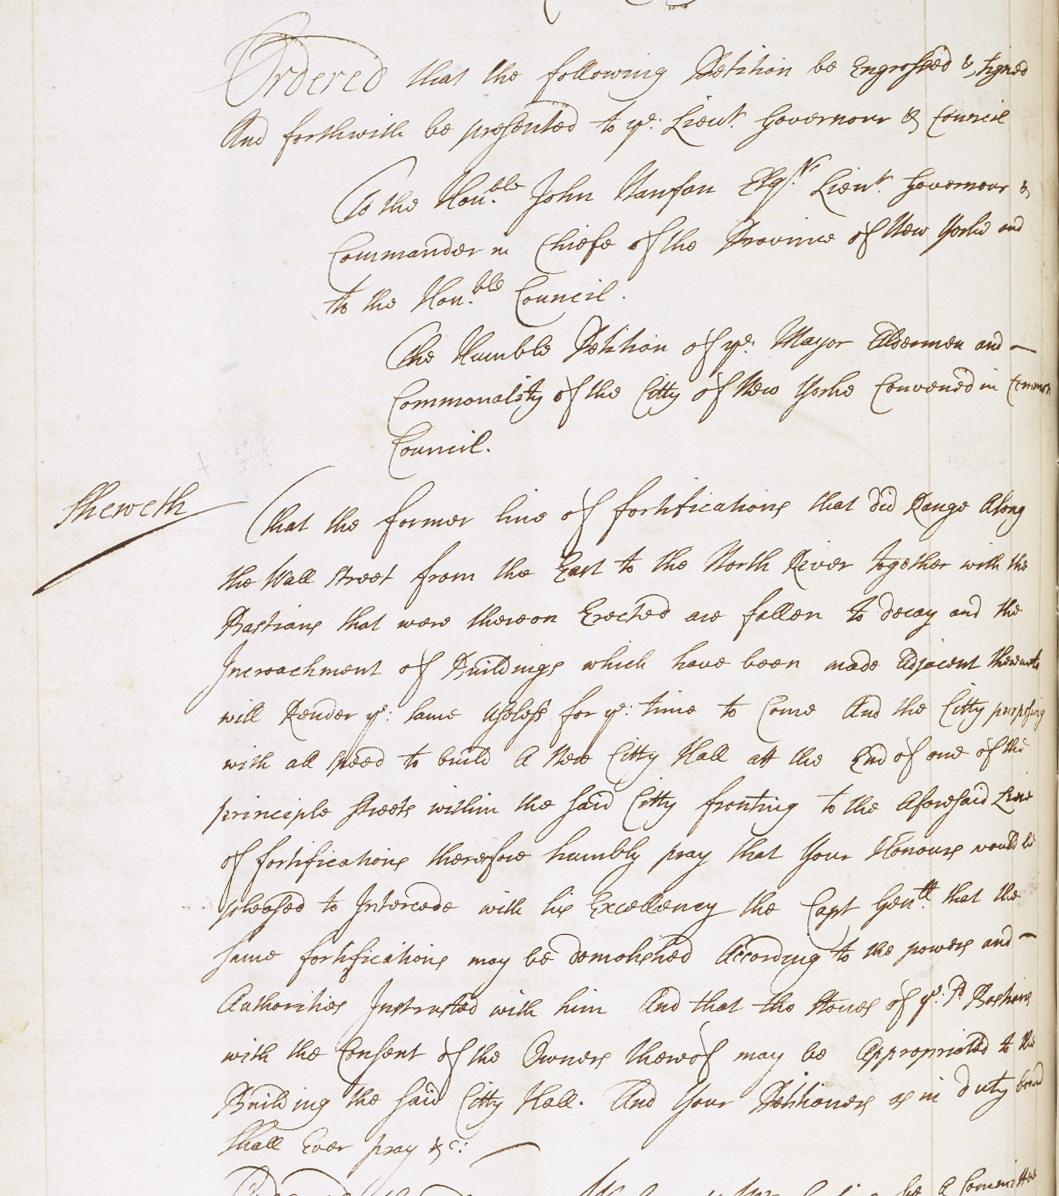 Ordered that the following Petition be Engrossed & signed
And forthwith be presented to ye: Lieut. Governour & Council
To the Hon.ble John Nanfan Esq.r Lieut. Governour &
Commander in Chiefe of the Province of New Yorke and
to the Hon.ble Council.
The Humble Petition of ye: Mayor Aldermen and
Commonality of the Citty of New Yorke Convened in Common
Council.
Sheweth That the former line of fortifications that did Range Along
the Wall Street from the East to the North River together with the
Bastians that were thereon Erected are fallen to decay and the
Incroachment of Buildings which have been made Adjacent thereunto
will Render ye: same Useless for ye: time to Come And the Citty purposing
with all speed to build A New Citty Hall att the End of one of the
principle streets within the said Citty fronting to the Aforesaid Line
of fortifications therefore humbly pray that Your Honours would be
pleased to Intercede with his Excellency the Capt Genll. that the
same fortifications may be demolished According to the powers and
Authorities Instrusted with him And that the Stones of ye: sd. Bastians
with the Consent of the Owners thereof may be Appropriated to the
Building the said Citty Hall. And Your Petitioners as in duty bound
shall Ever pray &c: